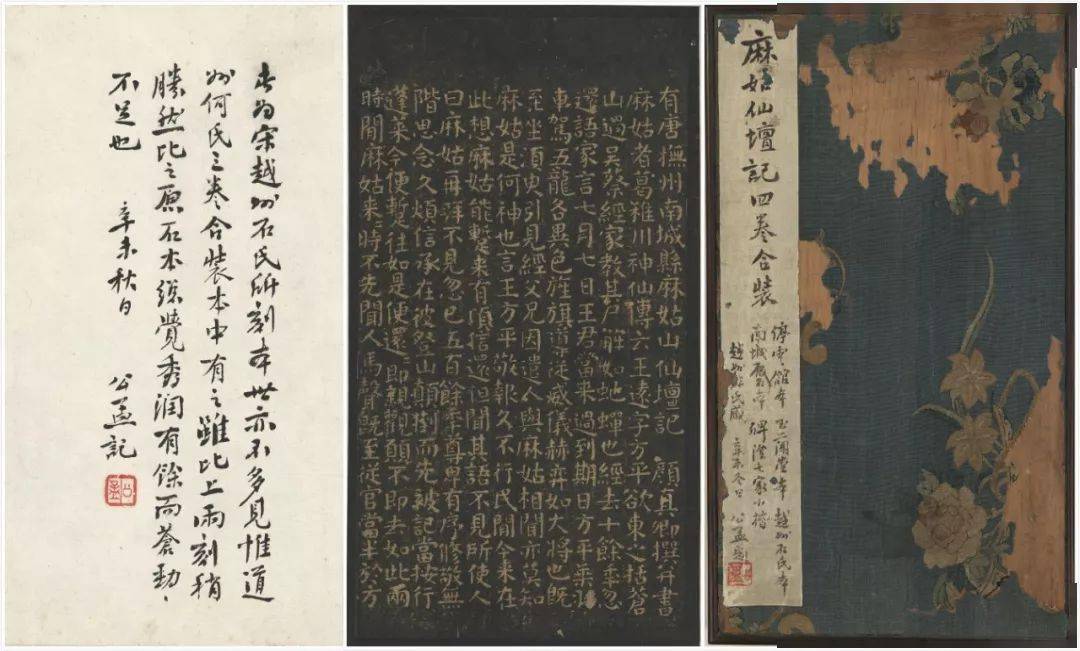 麻姑仙壇記四卷合裝
停雲館本 玉煙堂本 越州石氏本
南城舊本 小楷
辛未冬日 公孟
有唐撫州南城縣麻姑山仙壇記 顏真卿撰并書
麻姑者葛稚川神仙傳云王遠字方平欲東之括蒼
山過吳蔡經家教其尸解如虵蟬也經去十餘年忽
還語家言七月七日王君當來過到期日方平乘羽
車駕五龍各異色旌旗導從威儀赫弈如大將也既
至坐須臾引見經父兄因遣人與麻姑相聞亦莫知
麻姑是何神也言王方平敬報久不行民間今來在
此想麻姑能蹔來有頃信還但聞其語不見所使人
曰麻姑再拜不見忽已五百餘年尊卑有序修敬無
階思念久煩信承在彼登山顛倒而先被記當按行
蓬萊今便蹔往如是便還還即親觀願不即去如此兩
時間麻姑來來時不先聞人馬聲既至從官當半於方
此為宋越州石氏所刻本世亦不多見惟道
州何氏三卷合裝本中有之雖比上兩刻稍
勝然比之原石本終覺秀潤有餘而蒼勁
不足也 辛未秋日 公孟記